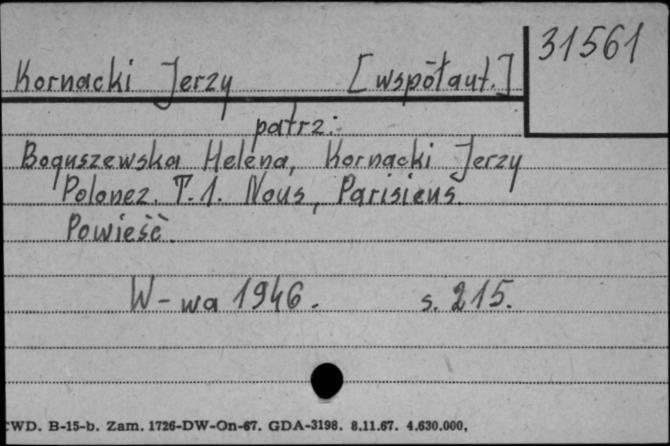 31561
Kornacki Jerzy [współaut.]
patrz:
Boguszewska Helena, Kornacki Jerzy
Polonez. T.1. Nous, Parisiens.
Powieść.
W-wa 1946. s. 215.
WD. B-15-b. Zam. 1726-DW-On-67. GDA-3198. 8.11.67. 4.630.000,